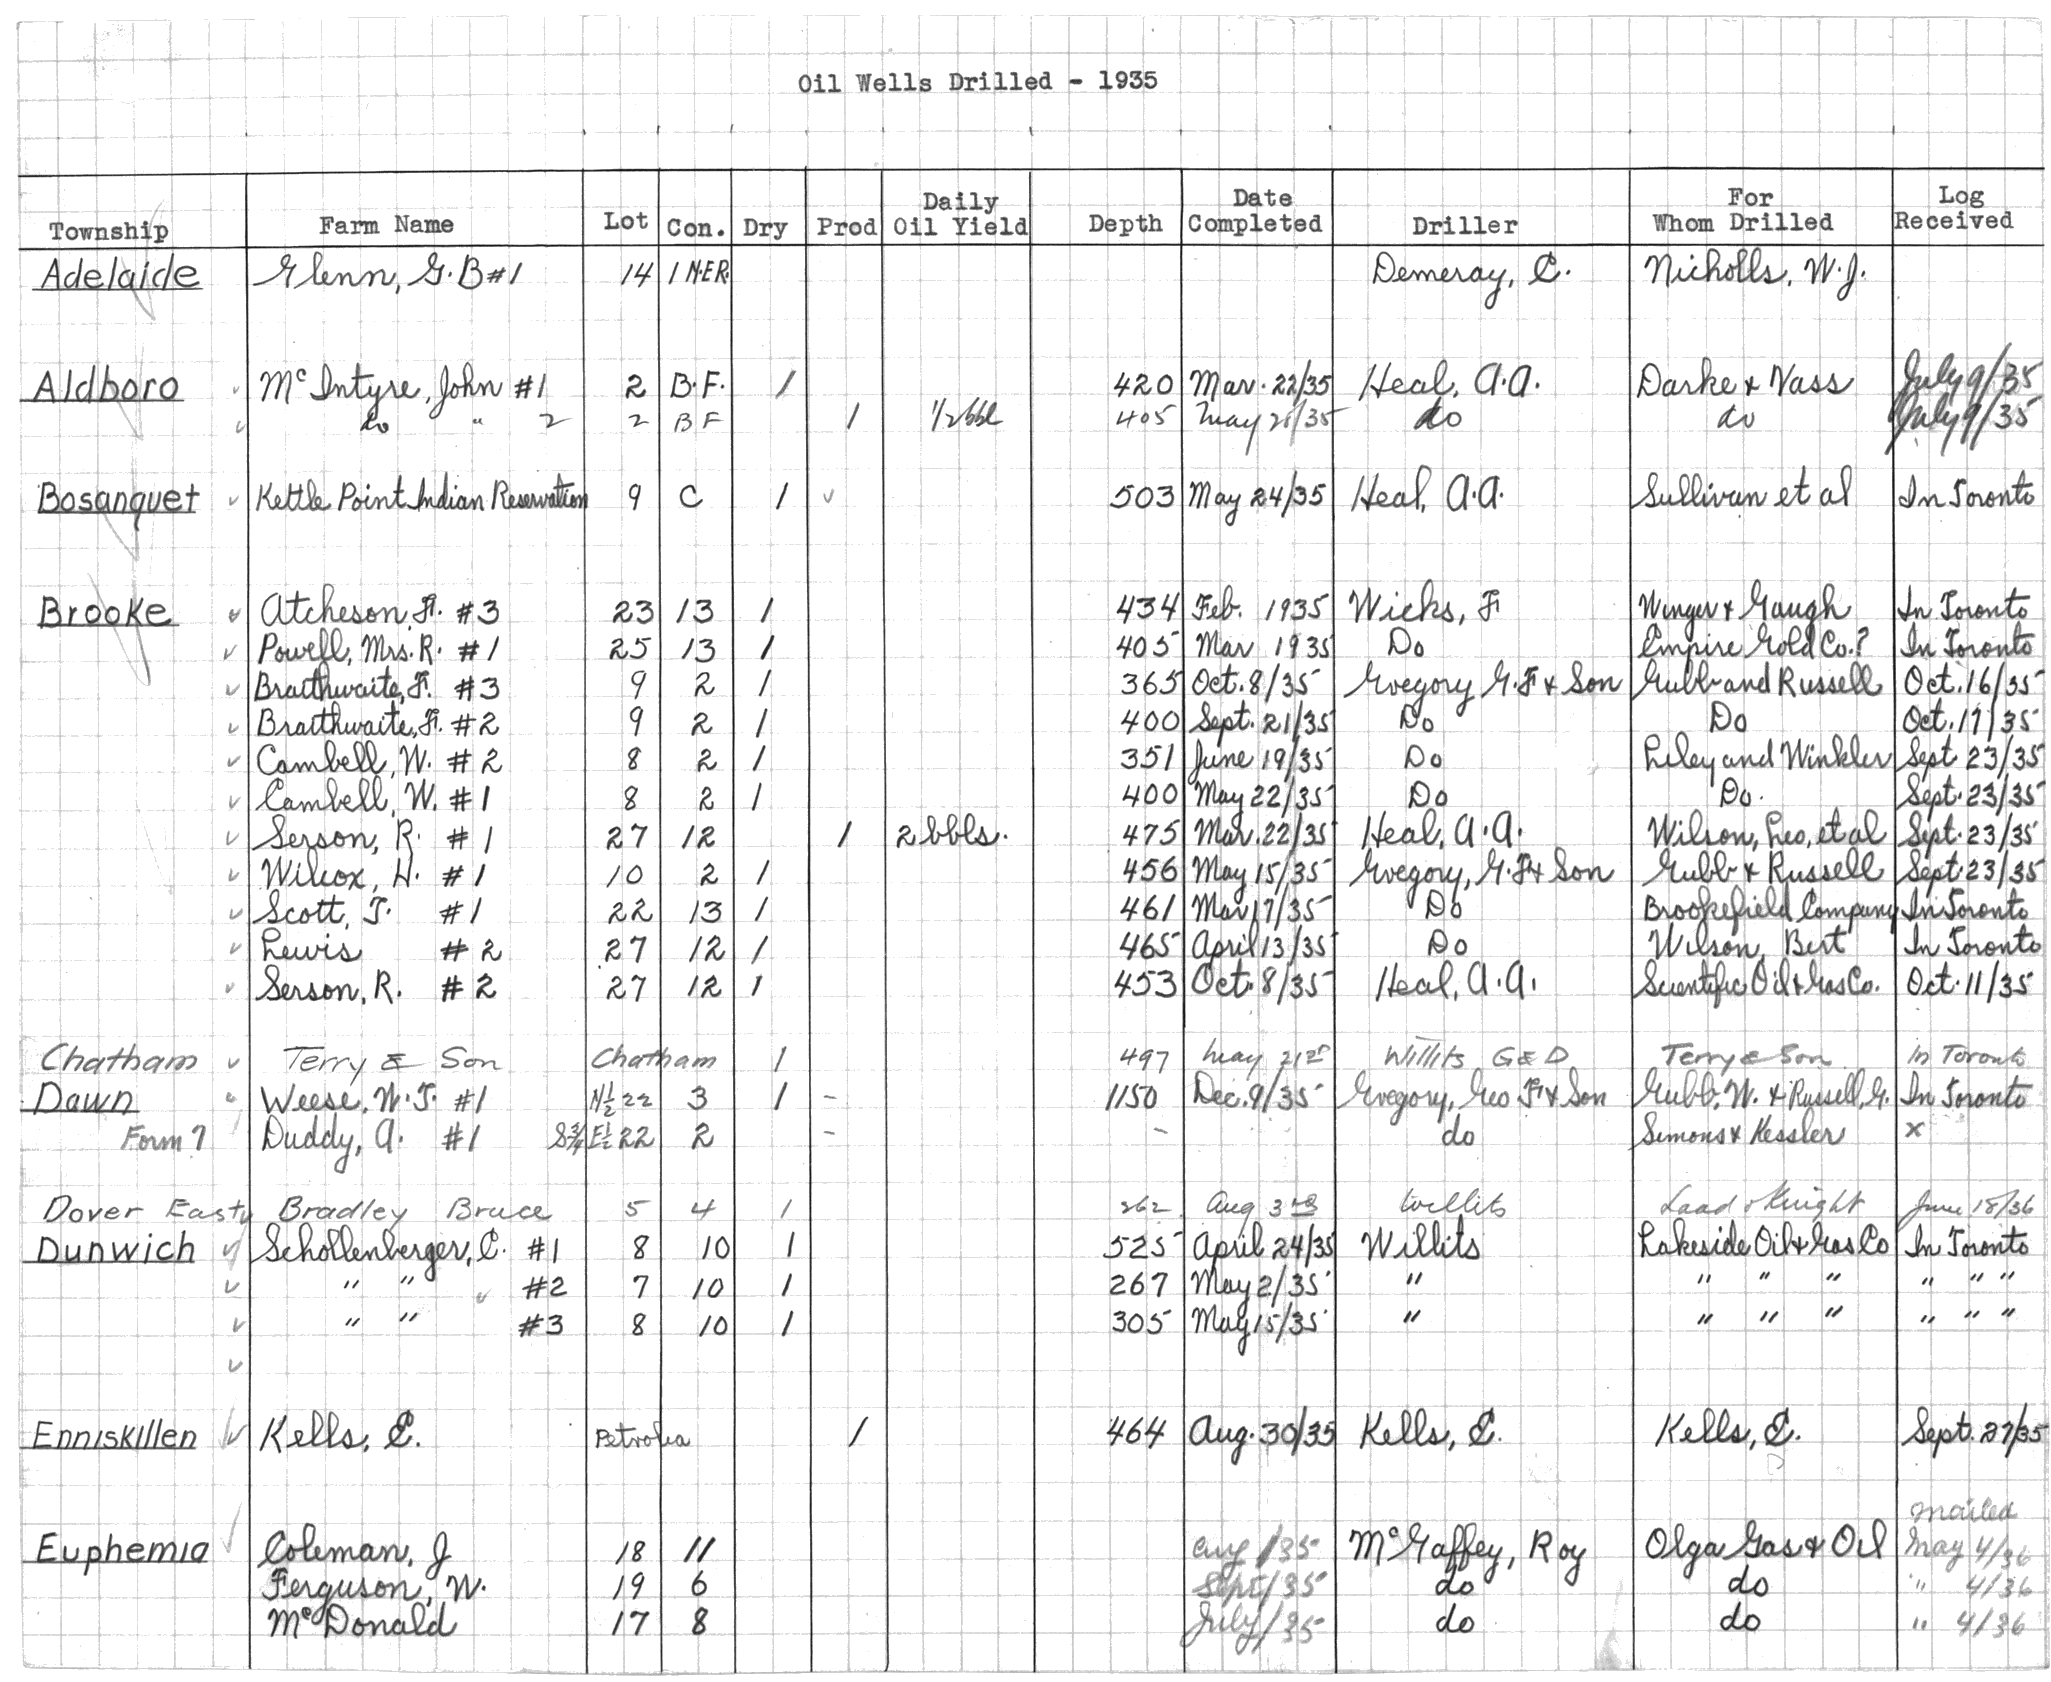 Oil Wells Drilled - 1935
Township Farm Name Lot Con. Dry Prod Daily Oil Yield Depth Date Completed Driller For Whom Drilled Log Received
Adelaide Glenn, G. B #1 14 1 N.E.R. Demeray, C. Nicholls, W.J.
Aldboro ✓ McIntyre, John #1 2 B.F. 1 420 Mar. 22/35 Heal, A.A. Darke & Vass July 9/35
✓ do " 2 2 BF 1 1/2 bbl 405 May 21/35 do do July 9/35
Bosanquet ✓ Kettle Point Indian Reservation 9 C 1 ✓ 503 May 24/35 Heal, A.A. Sullivan et al In Toronto
Brooke ✓ Atcheson, F. #3 23 13 1 434 Feb. 1935 Wicks, F Winger & Gaugh In Toronto
✓ Powell, Mrs. R. #1 25 13 1 405 Mar 1935 Do Empire Gold Co.? In Toronto
✓ Braithwaite, F. #3 9 2 1 365 Oct. 8/35 Gregory G. F & Son Gubb and Russell Oct. 16/35
✓ Braithwaite, F. #2 9 2 1 400 Sept. 21/35 Do Do Oct. 17/35
✓ Cambell, W. #2 8 2 1 351 June 19/35 Do Liley and Winkler Sept 23/35
✓ Cambell, W. #1 8 2 1 400 May 22/35 Do Do. Sept. 23/35
✓ Serson, R. #1 27 12 1 2 bbls. 475 Mar. 22/35 Heal, A.A. Wilson, Leo, et al Sept. 23/35
✓ Wilcox, H. #1 10 2 1 456 May 15/35 Gregory, G. F & Son Gubb & Russell Sept. 23/35
✓ Scott, T. #1 22 13 1 461 Mar 17/35 Do Brookefield Company In Toronto
✓ Lewis #2 27 12 1 465 April 13/35 Do Wilson, Bert In Toronto
✓ Serson, R. #2 27 12 1 453 Oct. 8/35 Heal, A.A. Scientific Oil & Gas Co. Oct. 11/35
Chatham ✓ Terry & Son Chatham 1 497 May 21 Willits G & D Terry & Son In Toronto
Dawn Weese, W. T. #1 N½ 22 3 1 - 1150 Dec. 9/35 Gregory, Geo. F & Son Gubb, W. & Russell, G. In Toronto
Form 7 Duddy, A. #1 S¾ E½ 22 2 - - do Simons & Kessler x
Dover East ✓ Bradley Bruce 5 4 1 262 Aug 3rd Willits Laad & Knight June 18/36
Dunwich ✓ Schollenberger, C. #1 8 10 1 525 April 24/35 Willits Lakeside Oil & Gas Co In Toronto
✓ " " ✓ #2 7 10 1 267 May 2/35 " " " " " " "
✓ " " #3 8 10 1 305 May 15/35 " " " " " " "
✓
Enniskillen ✓ Kells, E. Petrolia 1 464 Aug. 30/35 Kells, E. Kells, E. Sept. 27/35
mailed
Euphemia ✓ Coleman, J 18 11 Aug /35 McGaffey, Roy Olga Gas & Oil May 4/36
Ferguson, W. 19 6 Sept/35 do do " 4/36
McDonald 17 8 July/35 do do " 4/36